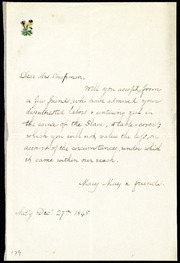 Dear Mrs Chapman,
Will you accept, from
a few friends, who have admired your
disinterested labors & untiring zeal in
the cause of the Slave, a table-cover,
which you will not value the less, on
account of the circumstances, under which
it came within our reach.
Mary May & friends.
Dec. 27th 1845.